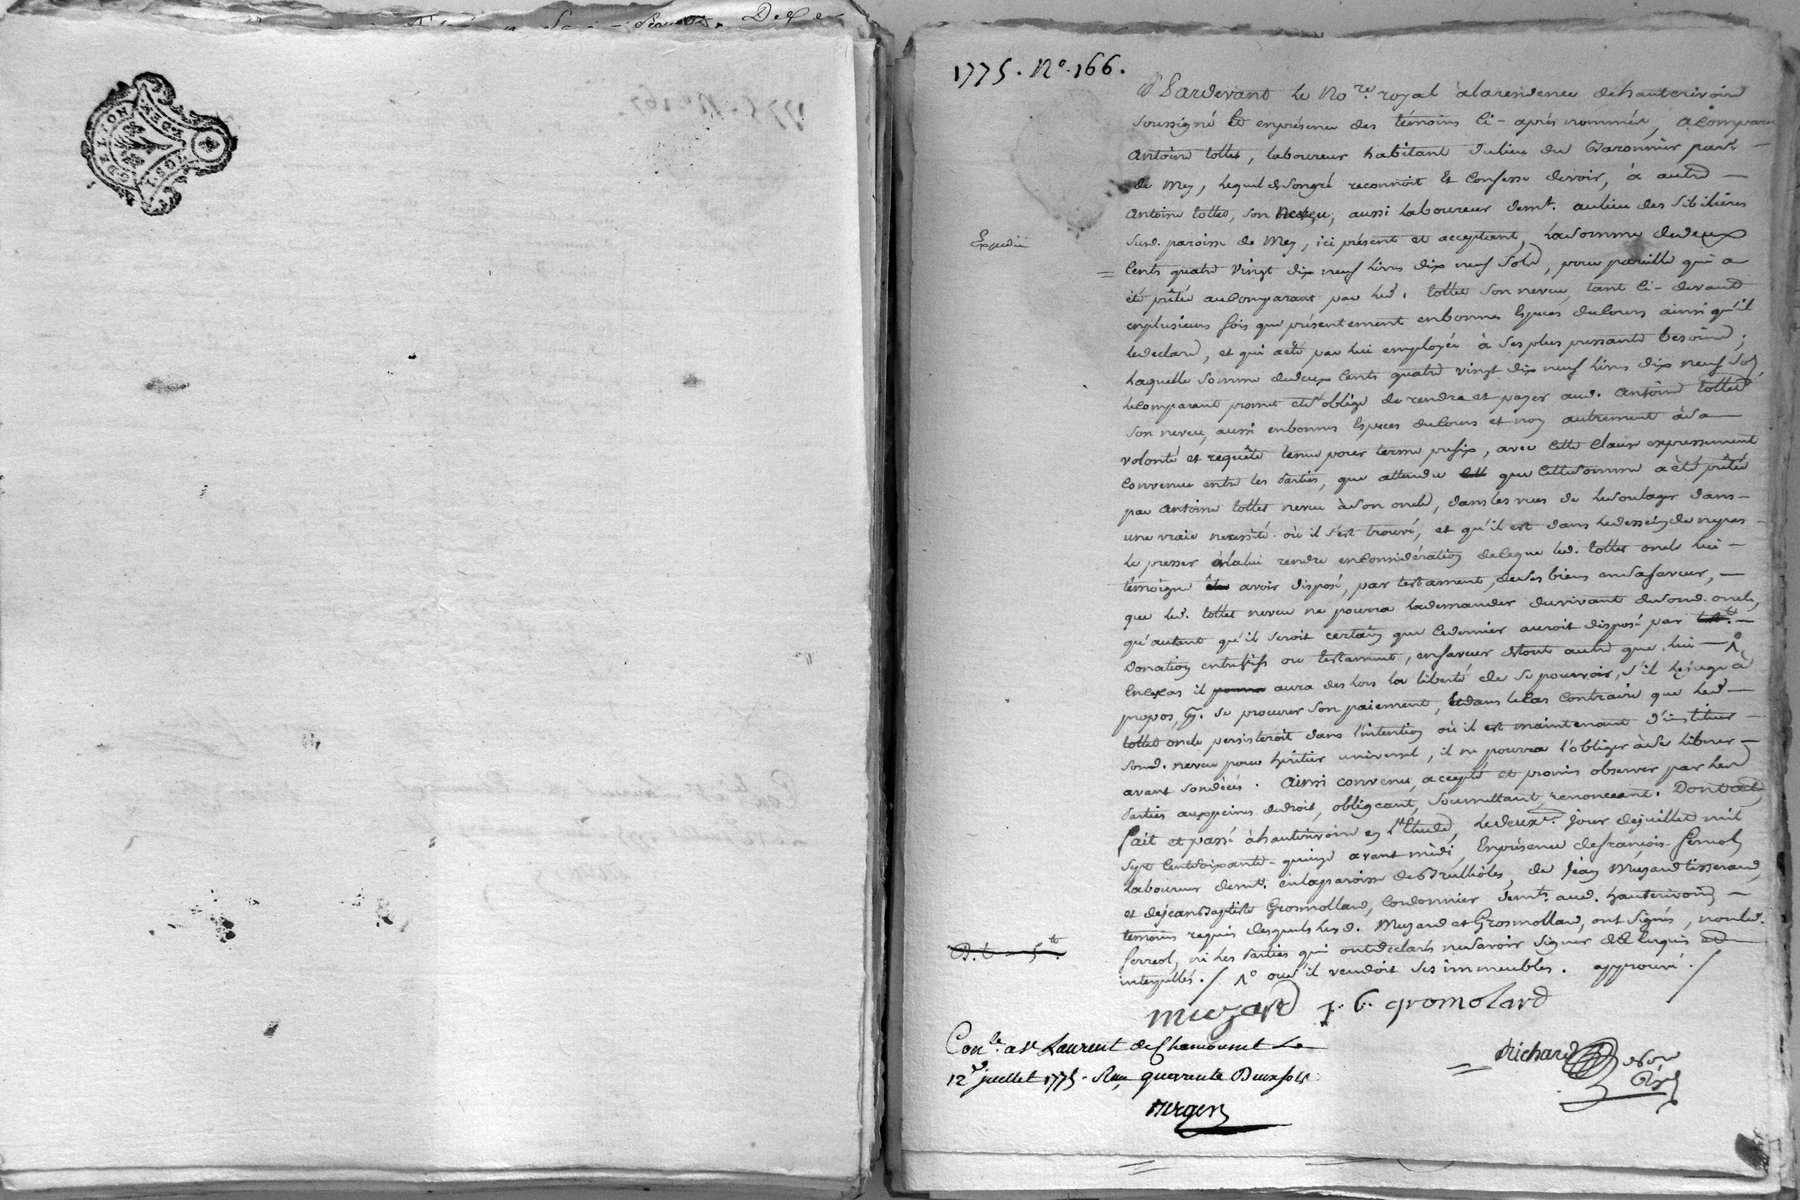 1775. N°. 166.
Pardevant le No.re royal à la residence de hauterivoire
soussigné Et en présence des témoins Ci-après nommés, a Comparu
Antoine tollet, laboureur habitant du lieu du Baronnier parr.
de Mey, lequel de son gré reconnoit Et Confesse devoir, à autre
Antoine tollet, son neveu, aussi laboureur dem.t au lieu des Sibilières
Susd. paroisse de Mey, ici présent et acceptant, la somme de deux
Expédié
Cents quatre vingt dix neuf livres dix neuf Sols, pour pareille qui a
été prêtée au Comparant par led. tollet son neveu, tant Ci-devant
en plusieurs fois que présentement en bonnes Espèces du Cours ainsi qu'il
le déclare, et qui a été par lui employée à Ses plus pressants besoins;
laquelle Somme de deux Cents quatre vingt dix neuf livres dix neuf Sols
le Comparant promet et s'oblige de rendre et payer aud. Antoine tollet
Son neveu, aussi en bonnes Espèces du Cours et non autrement à sa
volonté et requête tenue pour terme prefix, avec Cette Clause expressement
Convenue entre les Parties, que attendu que Cette Somme a été prêtée
par Antoine tollet neveu à son oncle, dans les vues de le soulager dans
une vraie nécessité où il s'est trouvé, et qu'il est dans le dessein de ne pas
le presser à la lui rendre en Considération de Ce que led. tollet oncle lui
témoigne avoir disposé, par testament, de ses biens en sa faveur,
que led. tollet neveu ne pourra la demander du vivant de Sond. oncle,
qu'autant qu'il seroit certain que Ce dernier auroit disposé par
Donation entrevifs ou testament, en faveur de tout autre que lui
En Ce Cas il aura des lors la liberté de Se pourvoir, s'il le juge à
propos, pr. Se procurer Son paiement, Et dans le Cas Contraire que led.
tollet oncle persisteroit dans l'intention où il est maintenant d'instituer
Sond. neveu pour héritier universel, il ne pourra l'obliger à se libérer
avant Son décés. Ainsi convenu, accepté et promis observer par lesd.
Parties aux peines de droit, obligeant, Soumettant renonceant. Dont acte
fait et passé à hauterivoire en l'Etude, le deux.e Jour de juillet mil
Sept Cent Soixante-quinze avant midi, En présence de françois ferreol
laboureur dem.t en la paroisse de Brulliôles, de Jean Muzard tisserand,
et de jean Baptiste Grosmollard, Cordonnier dem.ts aud. hauterivoire
témoins requis desquels lesd. Muzard et Grosmollard, ont signés, non led.
ferreol, ni les Parties qui ont déclarés ne savoir signer de Ce enquis et
interpellés. / ou s'il vendoit Ses immeubles. approuvé. /
muzard j. b. gromolard
Richard no.re
Con.lé a St Laurent de Chamousset Le
12 juillet 1775. Reçu quarente Deux sols